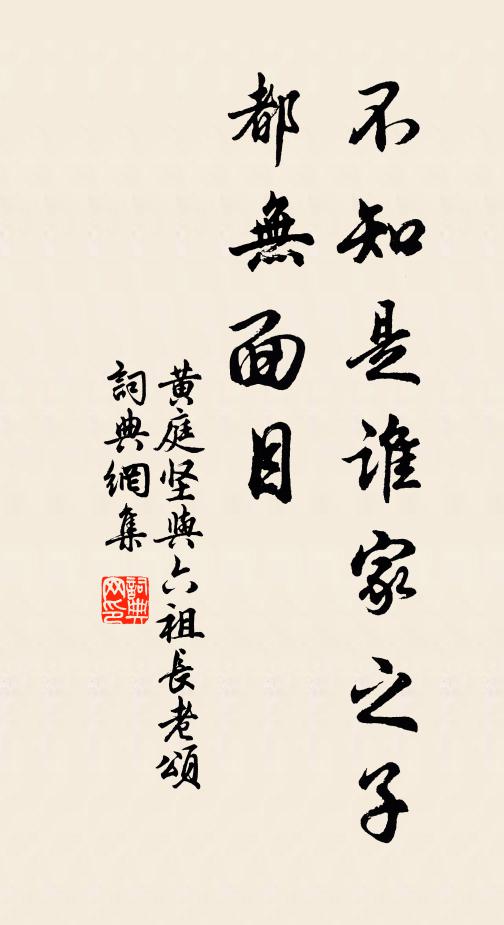 不知是誰家之子
都無面目
黃庭坚與六祖長老頌
詞典網集
詞典網印